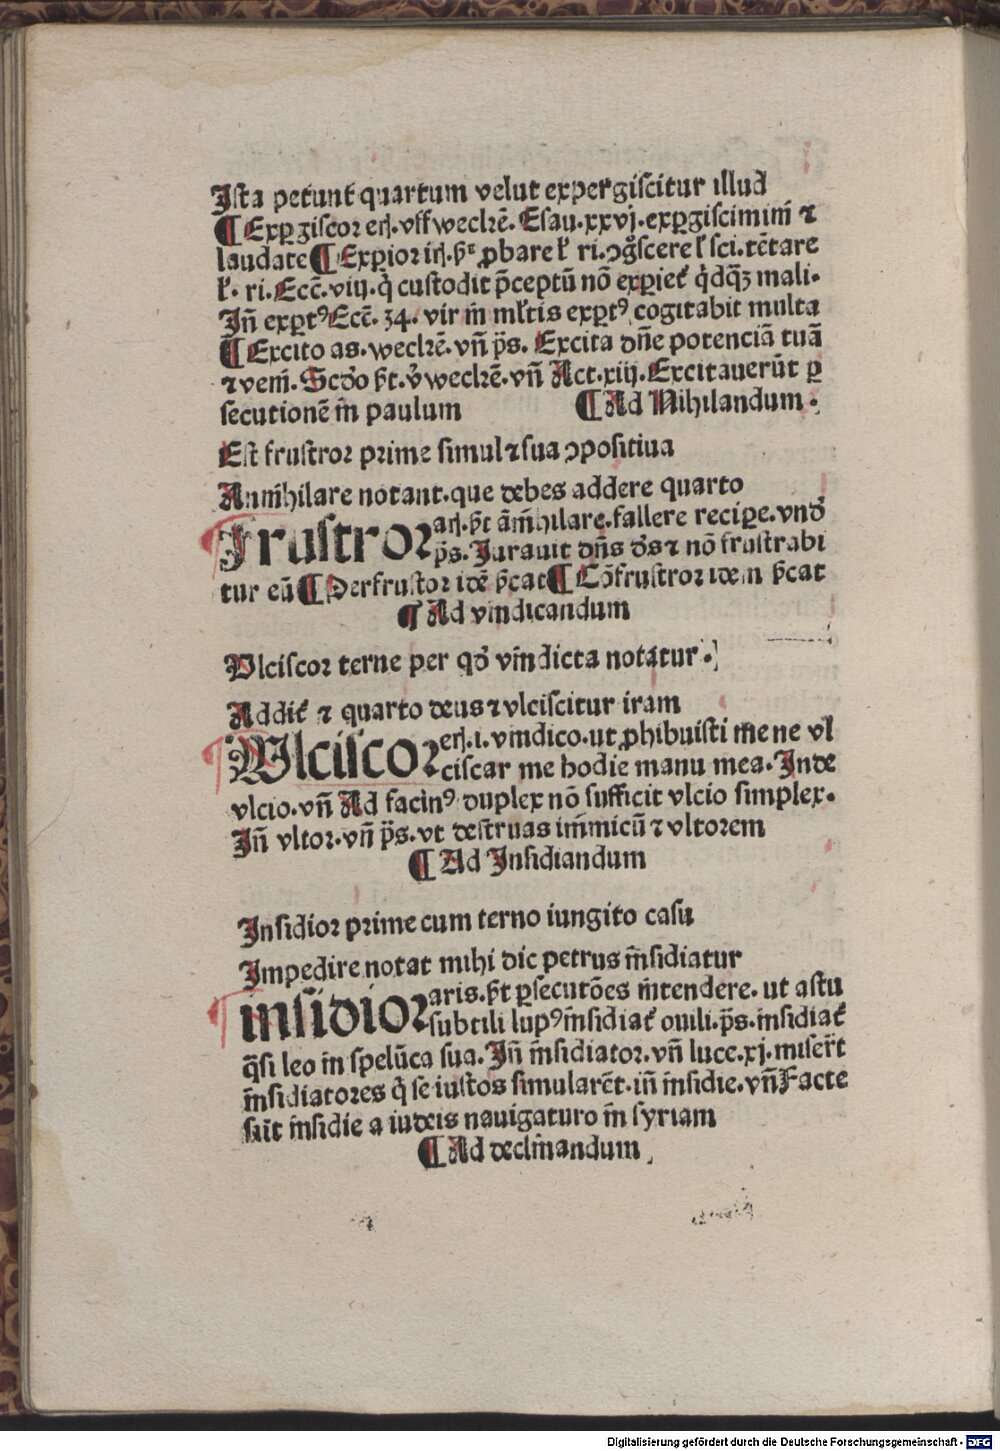 Ista petunt̄ quartum velut expergiscitur illud
¶ Exꝑgiscor erꝭ. vff wecken̄. Esau. xxvj. exꝑgiscimin̄ ⁊
laudate ¶ Exꝑior irꝭ. p̄t ꝓbare ł ri. ꝯgn̄scere ł sci. tētare
ł. ri. Ecc̄. viij. q̇ custodit p̄ceptū nō exꝑiet̄ q̇dq̄ꝫ mali.
Iñ exꝑtꝰ Ecc̄. 34. vir in̄ mł̄tis exꝑtꝰ cogitabit multa
¶ Excito as. wecken̄. vñ p̄s. Excita dn̄e potenciā tuā
⁊ veni. Scd̄o p̄t. v̓wecken̄. vñ Act. xiij. Excitauerūt ꝑ
secutionē in̄ paulum ¶ Ad Nihilandum.
Est frustror prime simul ⁊ sua ꝯpositiua
Annihilare notant. que debes addere quarto
Frustror arꝭ. p̄t ān̄ihilare. fallere recipe. vnd̓
p̄s. Iurauit dn̄s d̓s ⁊ nō frustrabi
tur eū ¶ Perfrustor idē p̄cat ¶ Cōfrustror idem p̄cat
¶ Ad vindicandum
Vlciscor terne per qd̓ vindicta notatur.
Addit̄ ⁊ quarto deus ⁊ vlciscitur iram
Vlciscor erꝭ. i. vindico. ut ꝓhibuisti me ne vl
ciscar me hodie manu mea. Inde
vlcio. vñ Ad facinꝰ duplex nō sufficit vlcio simplex.
Iñ vltor. vñ p̄s. vt destruas inimicū ⁊ vltorem
¶ Ad Insidiandum
Insidior prime cum terno iungito casu
Impedire notat mihi dic petrus in̄sidiatur
insidior aris. p̄t ꝑsecutōes in̄tendere. ut astu
subtili lupꝰ in̄sidiat̄ ouili. p̄s. in̄sidiat̄
q̄si leo in spelūca sua. Iñ in̄sidiator. vñ luce. xj. miser̄t
in̄sidiatores q̇ se iustos simularēt. iñ in̄sidie. vñ Facte
sūt in̄sidie a iudeis nauigaturo in̄ syriam
¶ Ad declin̄andum
Digitalisierung gefördert durch die Deutsche Forschungsgemeinschaft - DFG